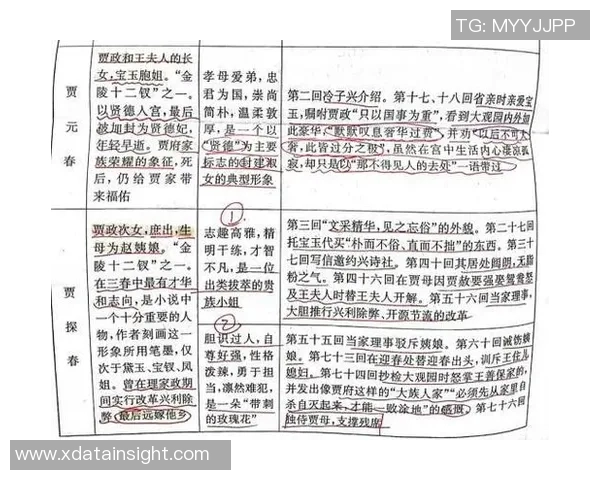 TG: MYYJJPP
贾元春
贾政和王夫人的长
女，宝玉胞姐。“金
陵十二钗”之一。
以贤德入宫，最后
被加封为贤德妃，
年轻早逝。贾府家
族荣耀的象征，死
后，仍给贾家带
来福佑
孝母爱弟，忠
君为国，崇尚
简朴，温柔敦
厚，是一个以
“贤德”为主要
标志的封建淑
女的典型形象
第二回冷子兴介绍。第十七、十八回省亲时亲爱宝
玉，嘱咐贾政“只以国事为重”，看到大观园内外如
此豪华，“默默叹息奢华过费”，并劝“以后不可太
奢，此皆过分之极”，虽然在宫中生活内心凄凉孤
寂，却只是以“那不得见人的去处”一语带过
贾探春
贾政次女，庶出，生
母为赵姨娘。“金
陵十二钗”之一。
在三春中最有才华
和志向，是小说中
一个十分重要的人
物，作者刻画这一
形象所用笔墨，仅
次于黛玉、宝钗、凤
姐。曾在理家政期
间实行改革兴利除
弊，最后远嫁他乡
①
志趣高雅，精
明干练，才智
不凡，是一位
出类拔萃的贵
族小姐
第三回“文采精华，见之忘俗”的外貌。第二十七回
托宝玉代买“朴而不俗、直而不拙”的东西。第三十
七回写信邀约兴诗社。第四十回其居处阔朗，无脂
粉之气。第四十六回在贾母因贾赦要强娶鸳鸯怒
及王夫人时替王夫人开解。第五十六回当家理事，
大胆推行兴利除弊、开源节流的改革
②
胆识过人，自
尊好强，性格
泼辣，勇于担
当，凛然难犯，
是一朵“带刺
的玫瑰花”
第五十五回当家理事驳斥姨娘。第六十回诫妨姨
娘。第七十三回在迎春处替迎春出头，训斥王住儿
媳妇。第七十四回抄检大观园时怒掌王善保家的，
并发出像贾府这样的“大族人家”“必须先从家里自
杀自灭起来，才能一败涂地”的感慨。第七十六回
独侍贾母，支撑残席
www.xdatainsight.com